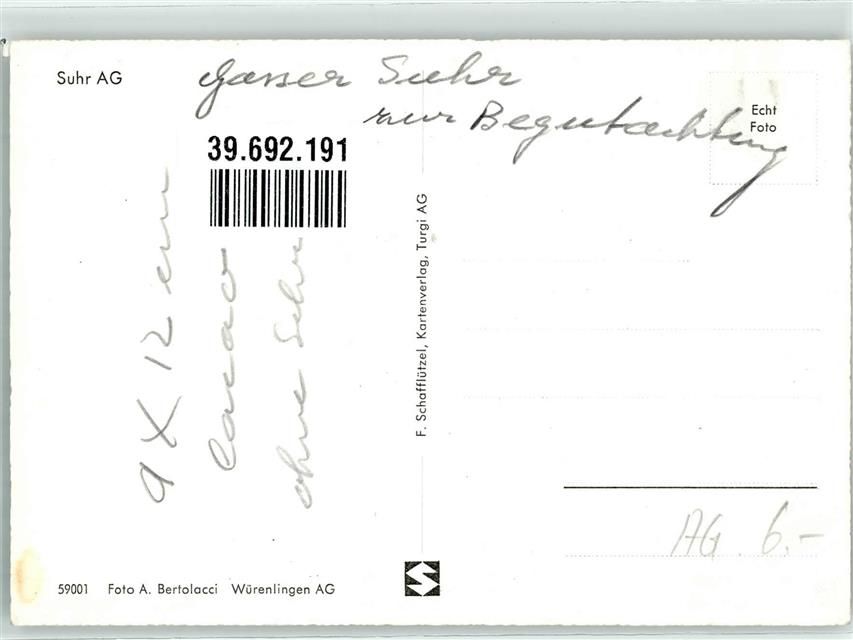 Suhr AG
Gasser Suhr
zur Begutachtung
Echt
Foto
39.692.191
9 X 12 cm
cacao
ohne Schr
F. Schafflützel, Kartenverlag, Turgi AG
AG 6.-
59001 Foto A. Bertolacci Würenlingen AG